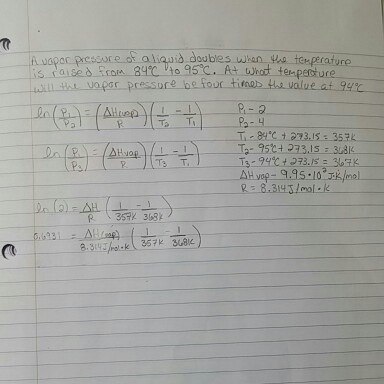 A vapor pressure of a liquid doubles when the temperature
is raised from 84°C to 95°C. At what temperature
will the vapor pressure be four times the value at 94°C
ln (P₁/P₂) = (ΔHvap/R) (1/T₂ - 1/T₁)
P₁ - 2
P₂ - 4
T₁ - 84°C + 273.15 = 357K
ln (P₁/P₃) = (ΔHvap/R) (1/T₃ - 1/T₁)
T₂ - 95°C + 273.15 = 368K
T₃ - 94°C + 273.15 = 367K
ΔHvap - 9.95·10² J·K/mol
R = 8.314 J/mol·K
ln (2) = ΔH/R (1/357K - 1/368K)
0.6931 = ΔH(vap)/8.314J/mol·K (1/357K - 1/368K)